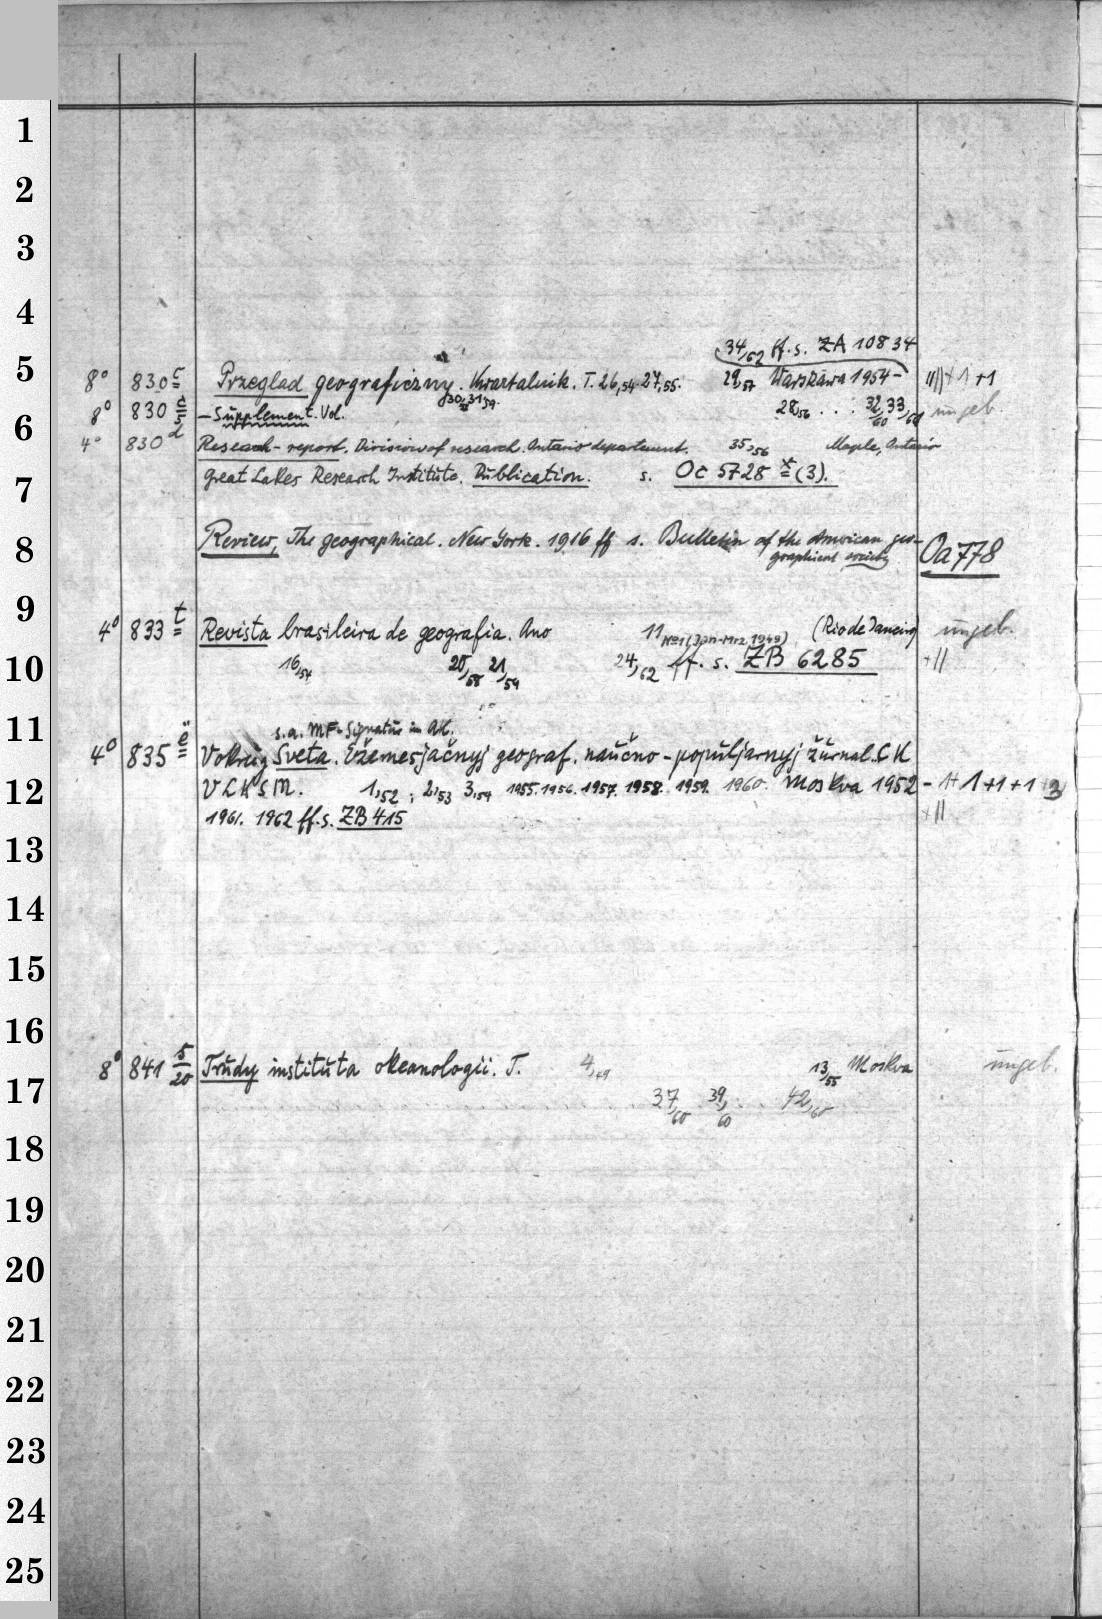 1
2
3
4
34,62 ff. s. ZA 10834
5
8° 830 c Przeglad geograficzny. Kwartalnik. T. 26,54-27,55. 29,57 Warszawa 1954- |||| + 1 +1
30, 31,59.
8° 830 c/5 - Supplement. Vol. 28,56 . . . 32,60 33,61 ungeb.
6
4° 830 d Research-report. Division of research. Ontario departement. 35,56 Maple, Ontario
Great Lakes Research Institute. Publication. s. Oc 5728 x (3).
7
Review, The geographical. New York. 1916 ff s. Bulletin of the American geo-
graphical society Oa 778
8
9
4° 833 t Revista brasileira de geografia. Ano 11 No 1 (Jan-Mrz. 1949) (Rio de Janeiro) ungeb.
16,54 20,58 21,59 24,62 ff. s. ZB 6285 + ||
10
11
s. a. MF-Signatur im AK.
4° 835 ë Vokrug Sveta. Ežemesjačnyj geograf. naučno-populjarnyj žurnal. CK
12
VLKSM. 1,52; 2,53 3,54 1955. 1956. 1957. 1958. 1959. 1960. Moskva 1952 - 1+ 1 +1 +1 +3
1961. 1962 ff. s. ZB 415 + ||
13
14
15
16
8° 841 5/20 Trudy instituta okeanologii. T. 4,49 13,55 Moskva ungeb.
17
37,60 39,60 . . 42,60
18
19
20
21
22
23
24
25